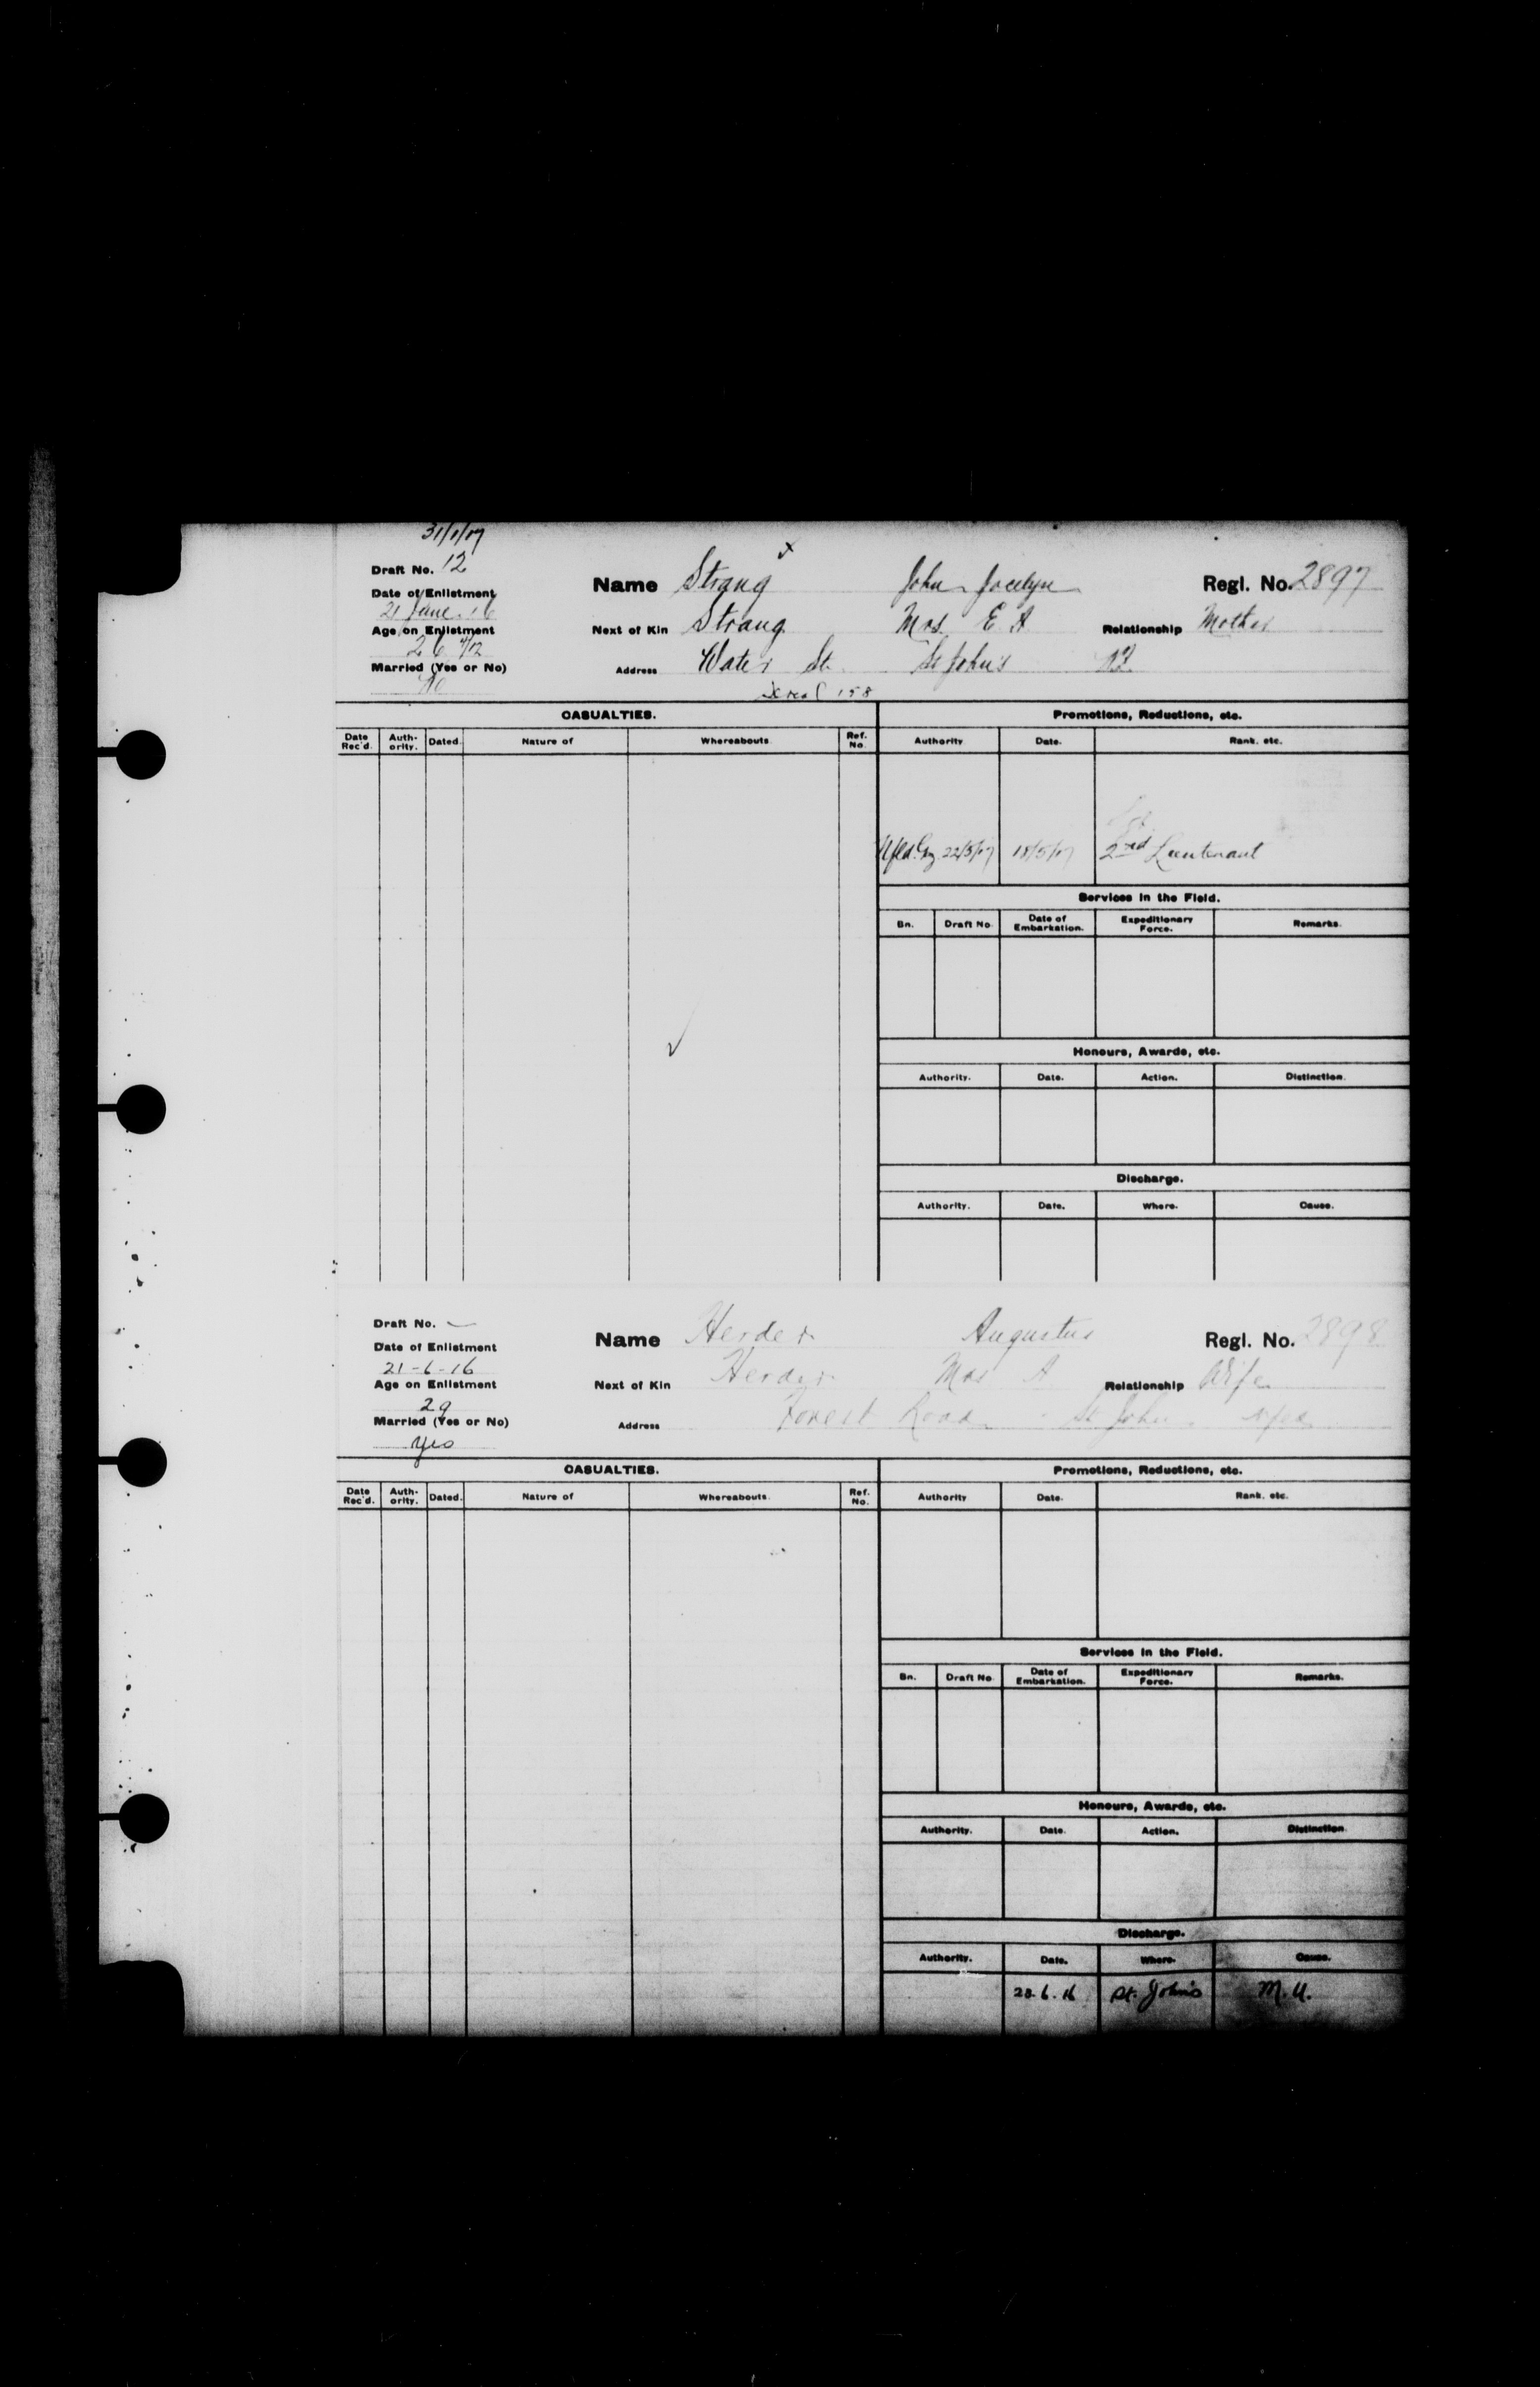 31/1/17
Draft No. 12
Name Strang x John Jocelyn Regl. No. 2897
Date of Enlistment
21 June 16
Next of Kin Strang Mrs. E A Relationship Mother
Age on Enlistment
26
Address Water St. St John's
Married (Yes or No)
No
158
CASUALTIES. Promotions, Reductions, etc.
Date Rec'd. Auth-ority. Dated. Nature of Whereabouts Ref. No. Authority Date. Rank. etc.
Nfld. Gaz 22/5/17 18/5/17 2nd Lieutenant
Services in the Field.
Bn. Draft No. Date of Embarkation. Expeditionary Force. Remarks.
Honours, Awards, etc.
Authority. Date. Action. Distinction.
Discharge.
Authority. Date. Where. Cause.
Draft No. —
Name Herder Augustus Regl. No. 2898
Date of Enlistment
21-6-16
Next of Kin Herder Mrs A Relationship Wife
Age on Enlistment
29
Address Forest Road St John Nfld
Married (Yes or No)
Yes
CASUALTIES. Promotions, Reductions, etc.
Date Rec'd. Auth-ority. Dated. Nature of Whereabouts. Ref. No. Authority Date. Rank. etc.
Services in the Field.
Bn. Draft No Date of Embarkation. Expeditionary Force. Remarks.
Honours, Awards, etc.
Authority. Date. Action. Distinction
Discharge.
Authority. Date. Where. Cause.
28.6.16 St. John's M.U.